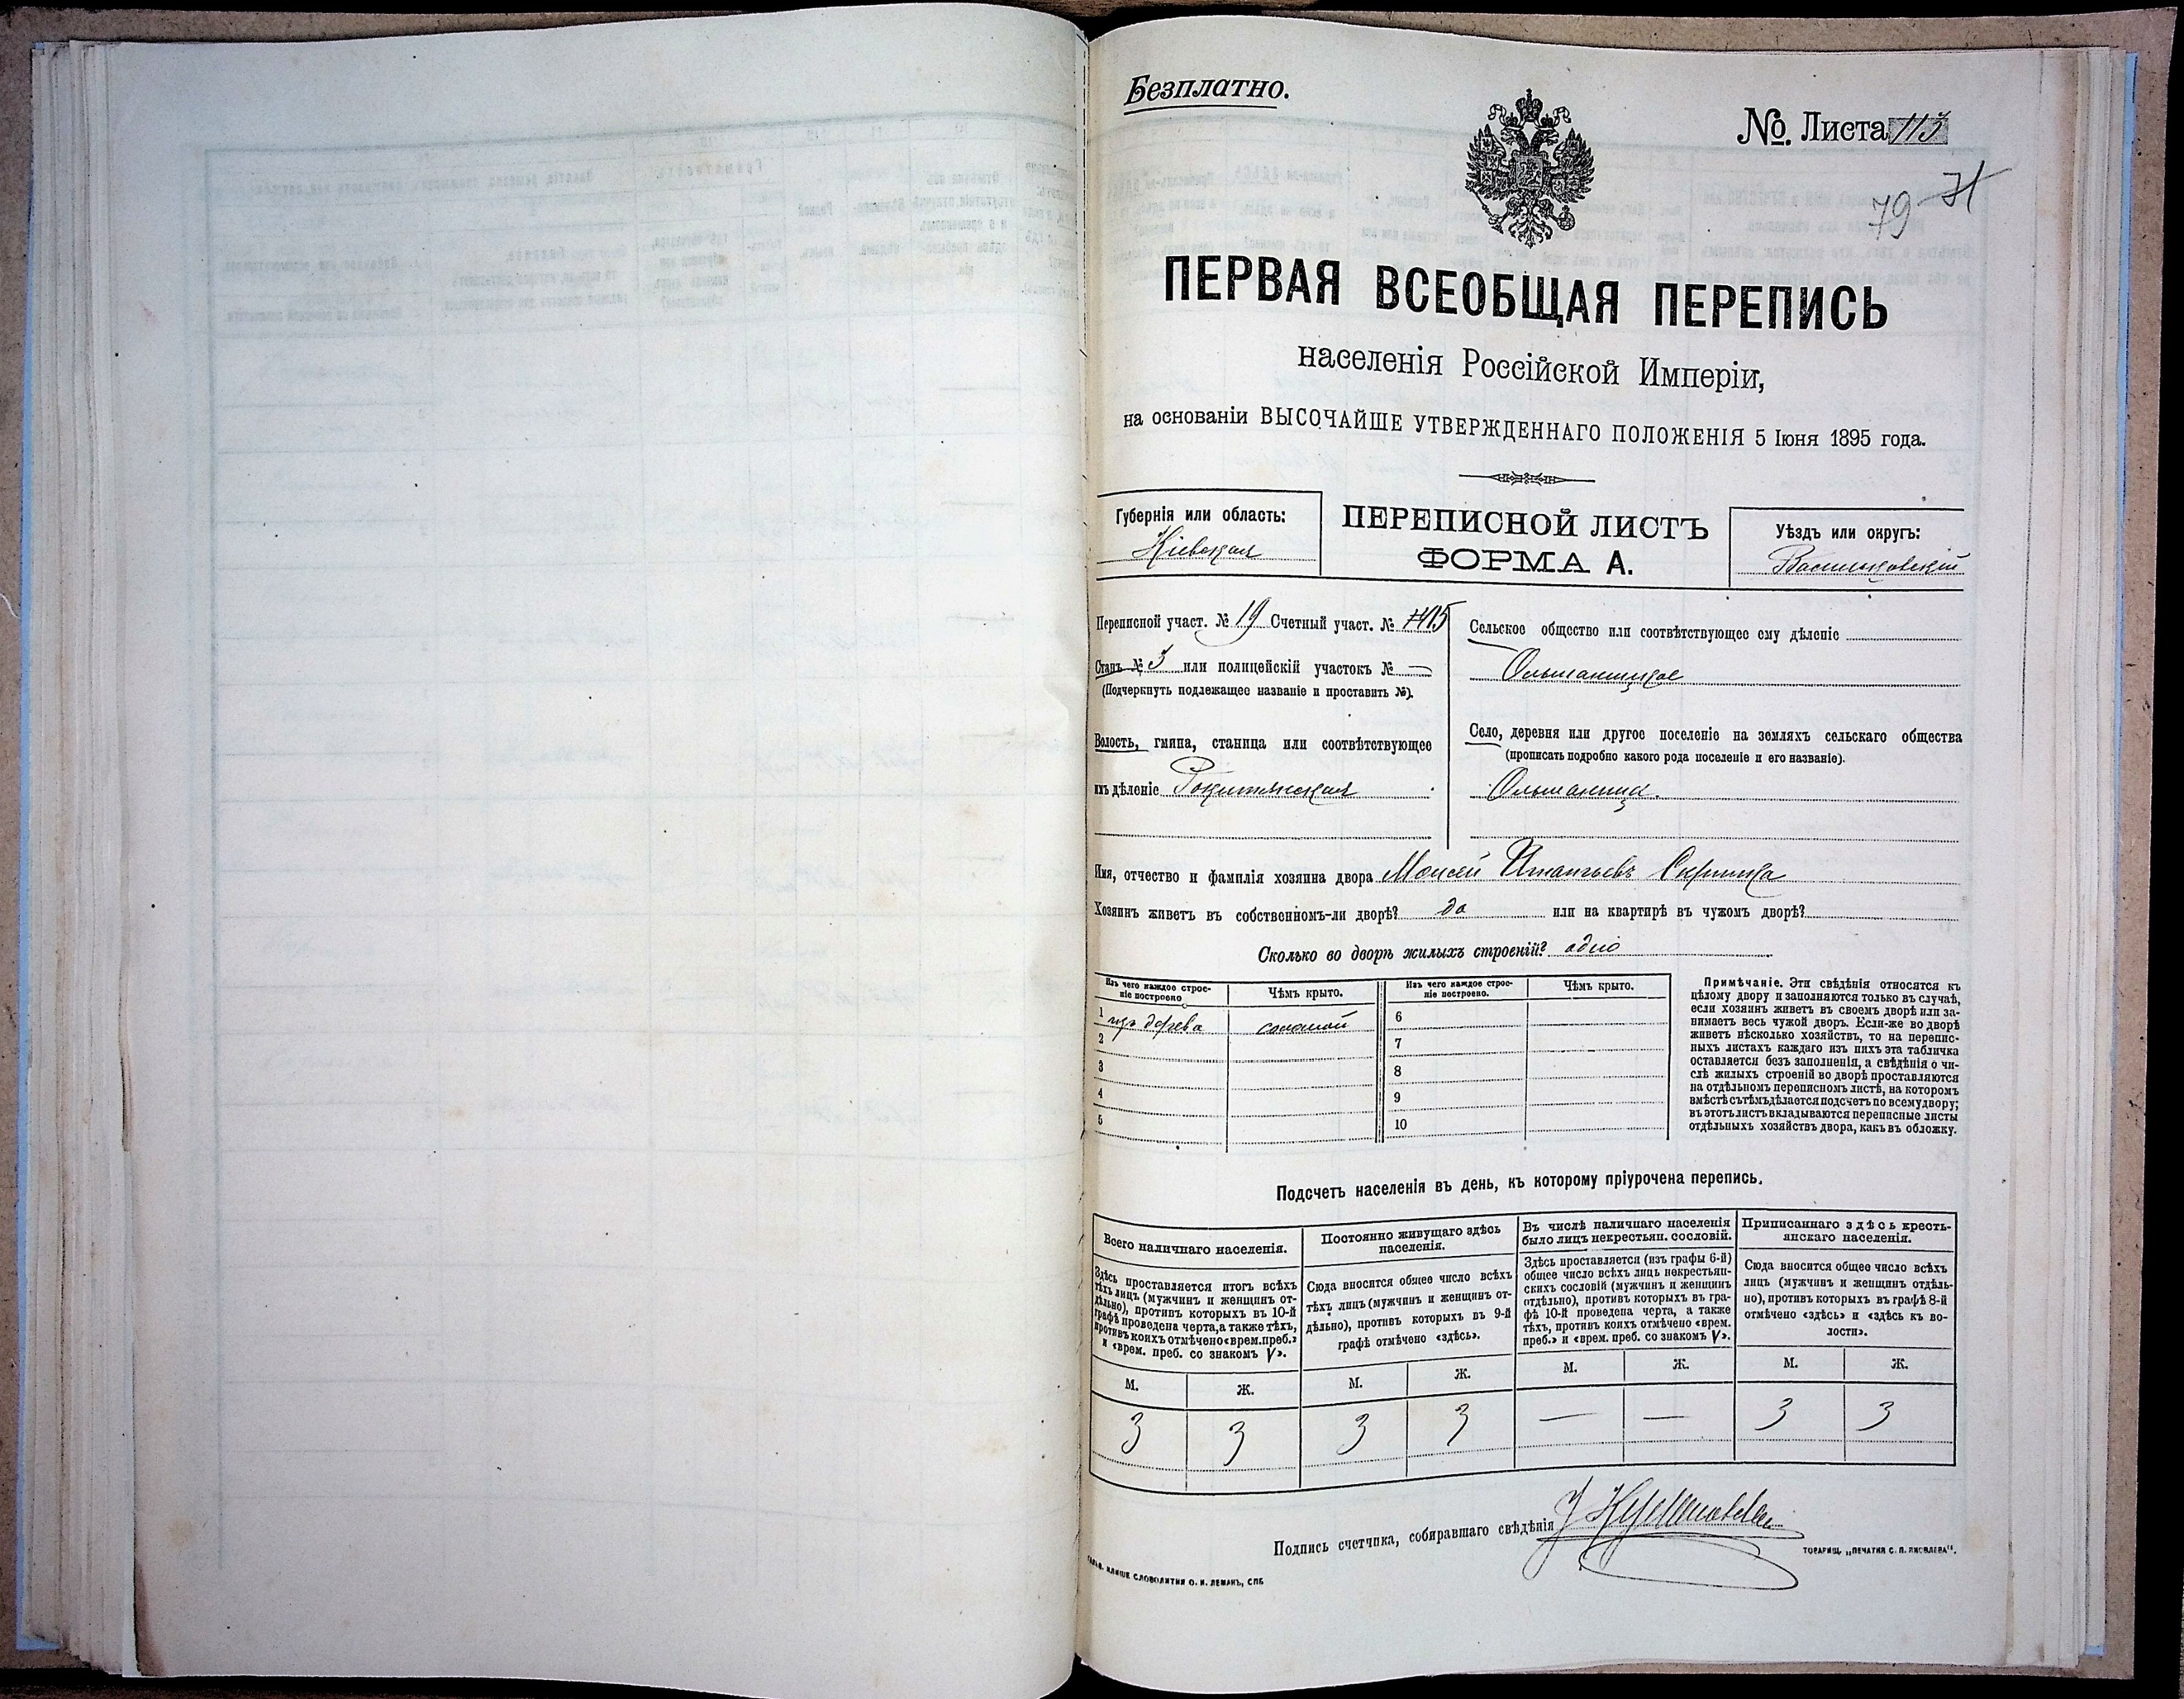 Безплатно.
№ Листа 113
79 71
ПЕРВАЯ ВСЕОБЩАЯ ПЕРЕПИСЬ
населенія Россійской Имперіи,
на основаніи ВЫСОЧАЙШЕ УТВЕРЖДЕННАГО ПОЛОЖЕНІЯ 5 Іюня 1895 года.
Губернія или область:
Кіевская
ПЕРЕПИСНОЙ ЛИСТЪ
ФОРМА А.
Уѣздъ или округъ:
Васильковскій
Переписной участ. № 19 Счетный участ. №
Станъ № 3 или полицейскій участокъ № —
(Подчеркнуть подлежащее названіе и проставить №).
Волость, гмина, станица или соотвѣтствующее
имъ дѣленіе Рокитянская
Сельское общество или соотвѣтствующее ему дѣленіе
Ольшаницкое
Село, деревня или другое поселеніе на земляхъ сельскаго общества
(прописать подробно какого рода поселеніе и его названіе).
Ольшаница.
Имя, отчество и фамилія хозяина двора Моисей Игнатьевъ Скрипка
Хозяинъ живетъ въ собственномъ-ли дворѣ? да или на квартирѣ въ чужомъ дворѣ?
Сколько во дворѣ жилыхъ строеній? одно
Изъ чего каждое строе-
ніе построено
Чѣмъ крыто.
Изъ чего каждое строе-
ніе построено.
Чѣмъ крыто.
1 изъ дерева соломой 6
2 7
3 8
4 9
5 10
Примѣчаніе. Эти свѣдѣнія относятся къ
цѣлому двору и заполняются только въ случаѣ,
если хозяинъ живетъ въ своемъ дворѣ или за-
нимаетъ весь чужой дворъ. Если-же во дворѣ
живетъ нѣсколько хозяйствъ, то на перепис-
ныхъ листахъ каждаго изъ нихъ эта табличка
оставляется безъ заполненія, а свѣдѣнія о чи-
слѣ жилыхъ строеній во дворѣ проставляются
на отдѣльномъ переписномъ листѣ, на которомъ
вмѣстѣ съ тѣмъ дѣлается подсчетъ по всему двору;
въ этотъ листъ вкладываются переписные листы
отдѣльныхъ хозяйствъ двора, какъ въ обложку.
Подсчетъ населенія въ день, къ которому пріурочена перепись.
Всего наличнаго населенія.
Здѣсь проставляется итогъ всѣхъ
тѣхъ лицъ (мужчинъ и женщинъ от-
дѣльно), противъ которыхъ въ 10-й
графѣ проведена черта, а также тѣхъ,
противъ коихъ отмѣчено «врем. преб.»
и «врем. преб. со знакомъ V».
Постоянно живущаго здѣсь
населенія.
Сюда вносится общее число всѣхъ
тѣхъ лицъ (мужчинъ и женщинъ от-
дѣльно), противъ которыхъ въ 9-й
графѣ отмѣчено «здѣсь».
Въ числѣ наличнаго населенія
было лицъ некрестьян. сословій.
Здѣсь проставляется (изъ графы 6-й)
общее число всѣхъ лицъ некрестьян-
скихъ сословій (мужчинъ и женщинъ
отдѣльно), противъ которыхъ въ гра-
фѣ 10-й проведена черта, а также
тѣхъ, противъ коихъ отмѣчено «врем.
преб.» и «врем. преб. со знакомъ V».
Приписаннаго здѣсь кресть-
янскаго населенія.
Сюда вносится общее число всѣхъ
лицъ (мужчинъ и женщинъ отдѣль-
но), противъ которыхъ въ графѣ 8-й
отмѣчено «здѣсь» и «здѣсь къ во-
лости».
М. Ж. М. Ж. М. Ж. М. Ж.
3 3 3 3 — — 3 3
Подпись счетчика, собиравшаго свѣдѣнія
КЛИШЕ СЛОВОЛИТНИ О. И. ЛЕМАНЪ, СПБ
ТОВАРИЩ. „ПЕЧАТНЯ С. П. ЯКОВЛЕВА".